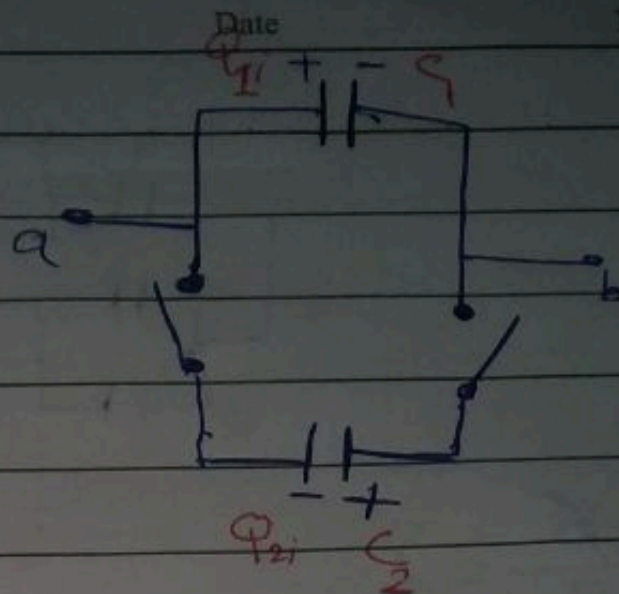 Date
Q1i + - C1
a
b
- +
Q2i C2